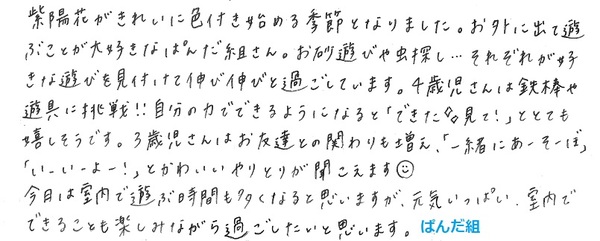 紫陽花がきれいに色付き始める季節となりました。お外に出て遊
ぶことが大好きなぱんだ組さん。お砂遊びや虫探し…それぞれが好
きな遊びを見付けて伸び伸びと過ごしています。4歳児さんは鉄棒や
遊具に挑戦!!自分の力でできるようになると「できた◇◇見て!」ととても
嬉しそうです。3歳児さんはお友達との関わりも増え、「一緒にあーそーぼ」
「いーいーよー!」とかわいいやりとりが聞こえます☺
今月は室内で遊ぶ時間も多くなると思いますが、元気いっぱい、室内で
できることも楽しみながら過ごしたいと思います。 ぱんだ組